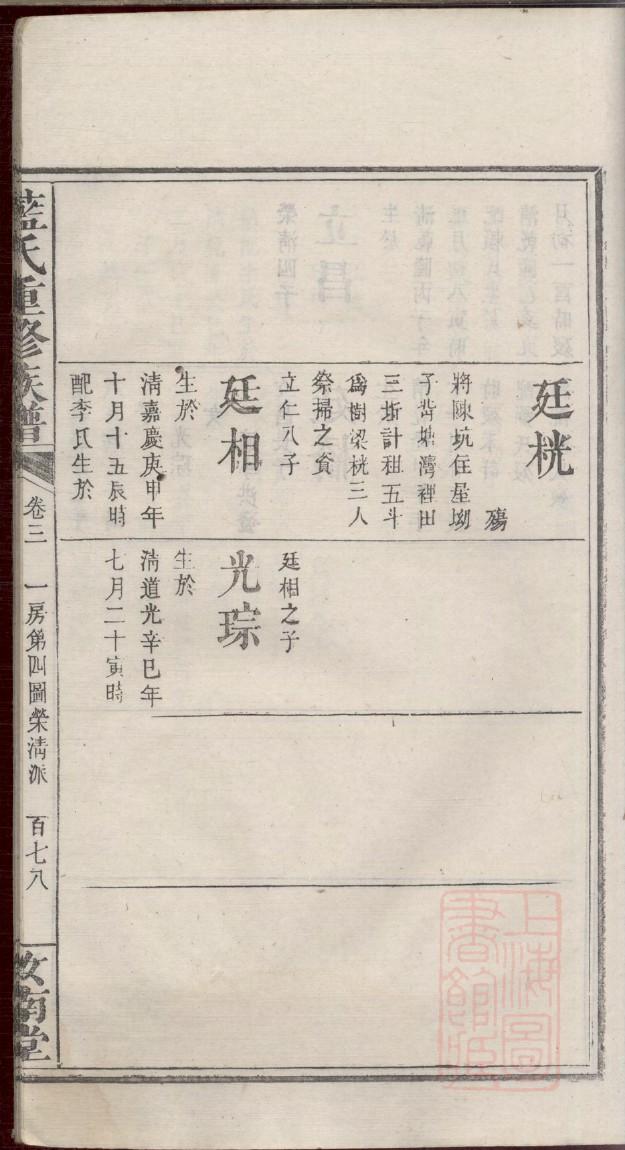 廷桄
殤
將陳坑住屋坳
子背塘灣裡田
三坵計租五斗
爲樹梁桄三人
祭掃之資
立仁八子
廷相
生於
淸嘉慶庚申年
十月十五辰時
配李氏生於
廷相之子
光琮
生於
淸道光辛巳年
七月二十寅時
藍氏重修族譜
卷三
一房第四圖榮淸派
百七八
汝南堂
上海圖
書館藏